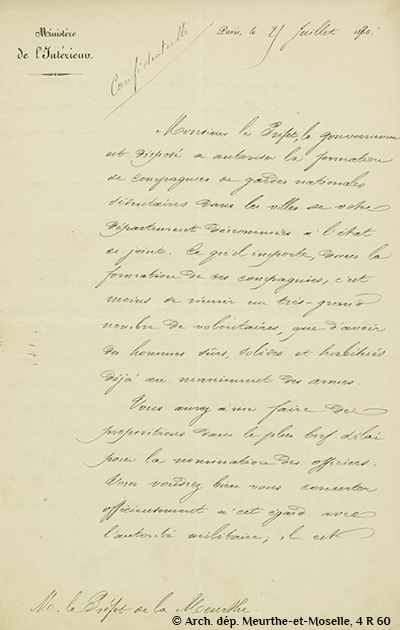 Ministère
de l'Intérieur.
Paris, le 25 Juillet 1870.
Confidentielle
Monsieur le Préfet, le gouvernement
est disposé a autoriser la formation
de compagnies de gardes nationales
sédentaires dans les villes de votre
Département dénommées à l'état
ci-joint. Ce qu'il importe, dans la
formation de ces compagnies, c'est
moins de réunir un très-grand
nombre de volontaires, que d'avoir
des hommes sûrs, solides et habitués
déjà au maniement des armes.
Vous aurez à me faire des
propositions dans le plus bref délai
pour la nomination des officiers.
Vous voudrez bien vous concerter
officieusement à cet égard avec
l'autorité militaire; il est
M. le Préfet de la Meurthe.
© Arch. dép. Meurthe-et-Moselle, 4 R 60